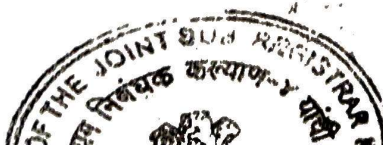 OF THE JOINT SUB REGISTRAR
निबंधक कल्याण-४ यांची